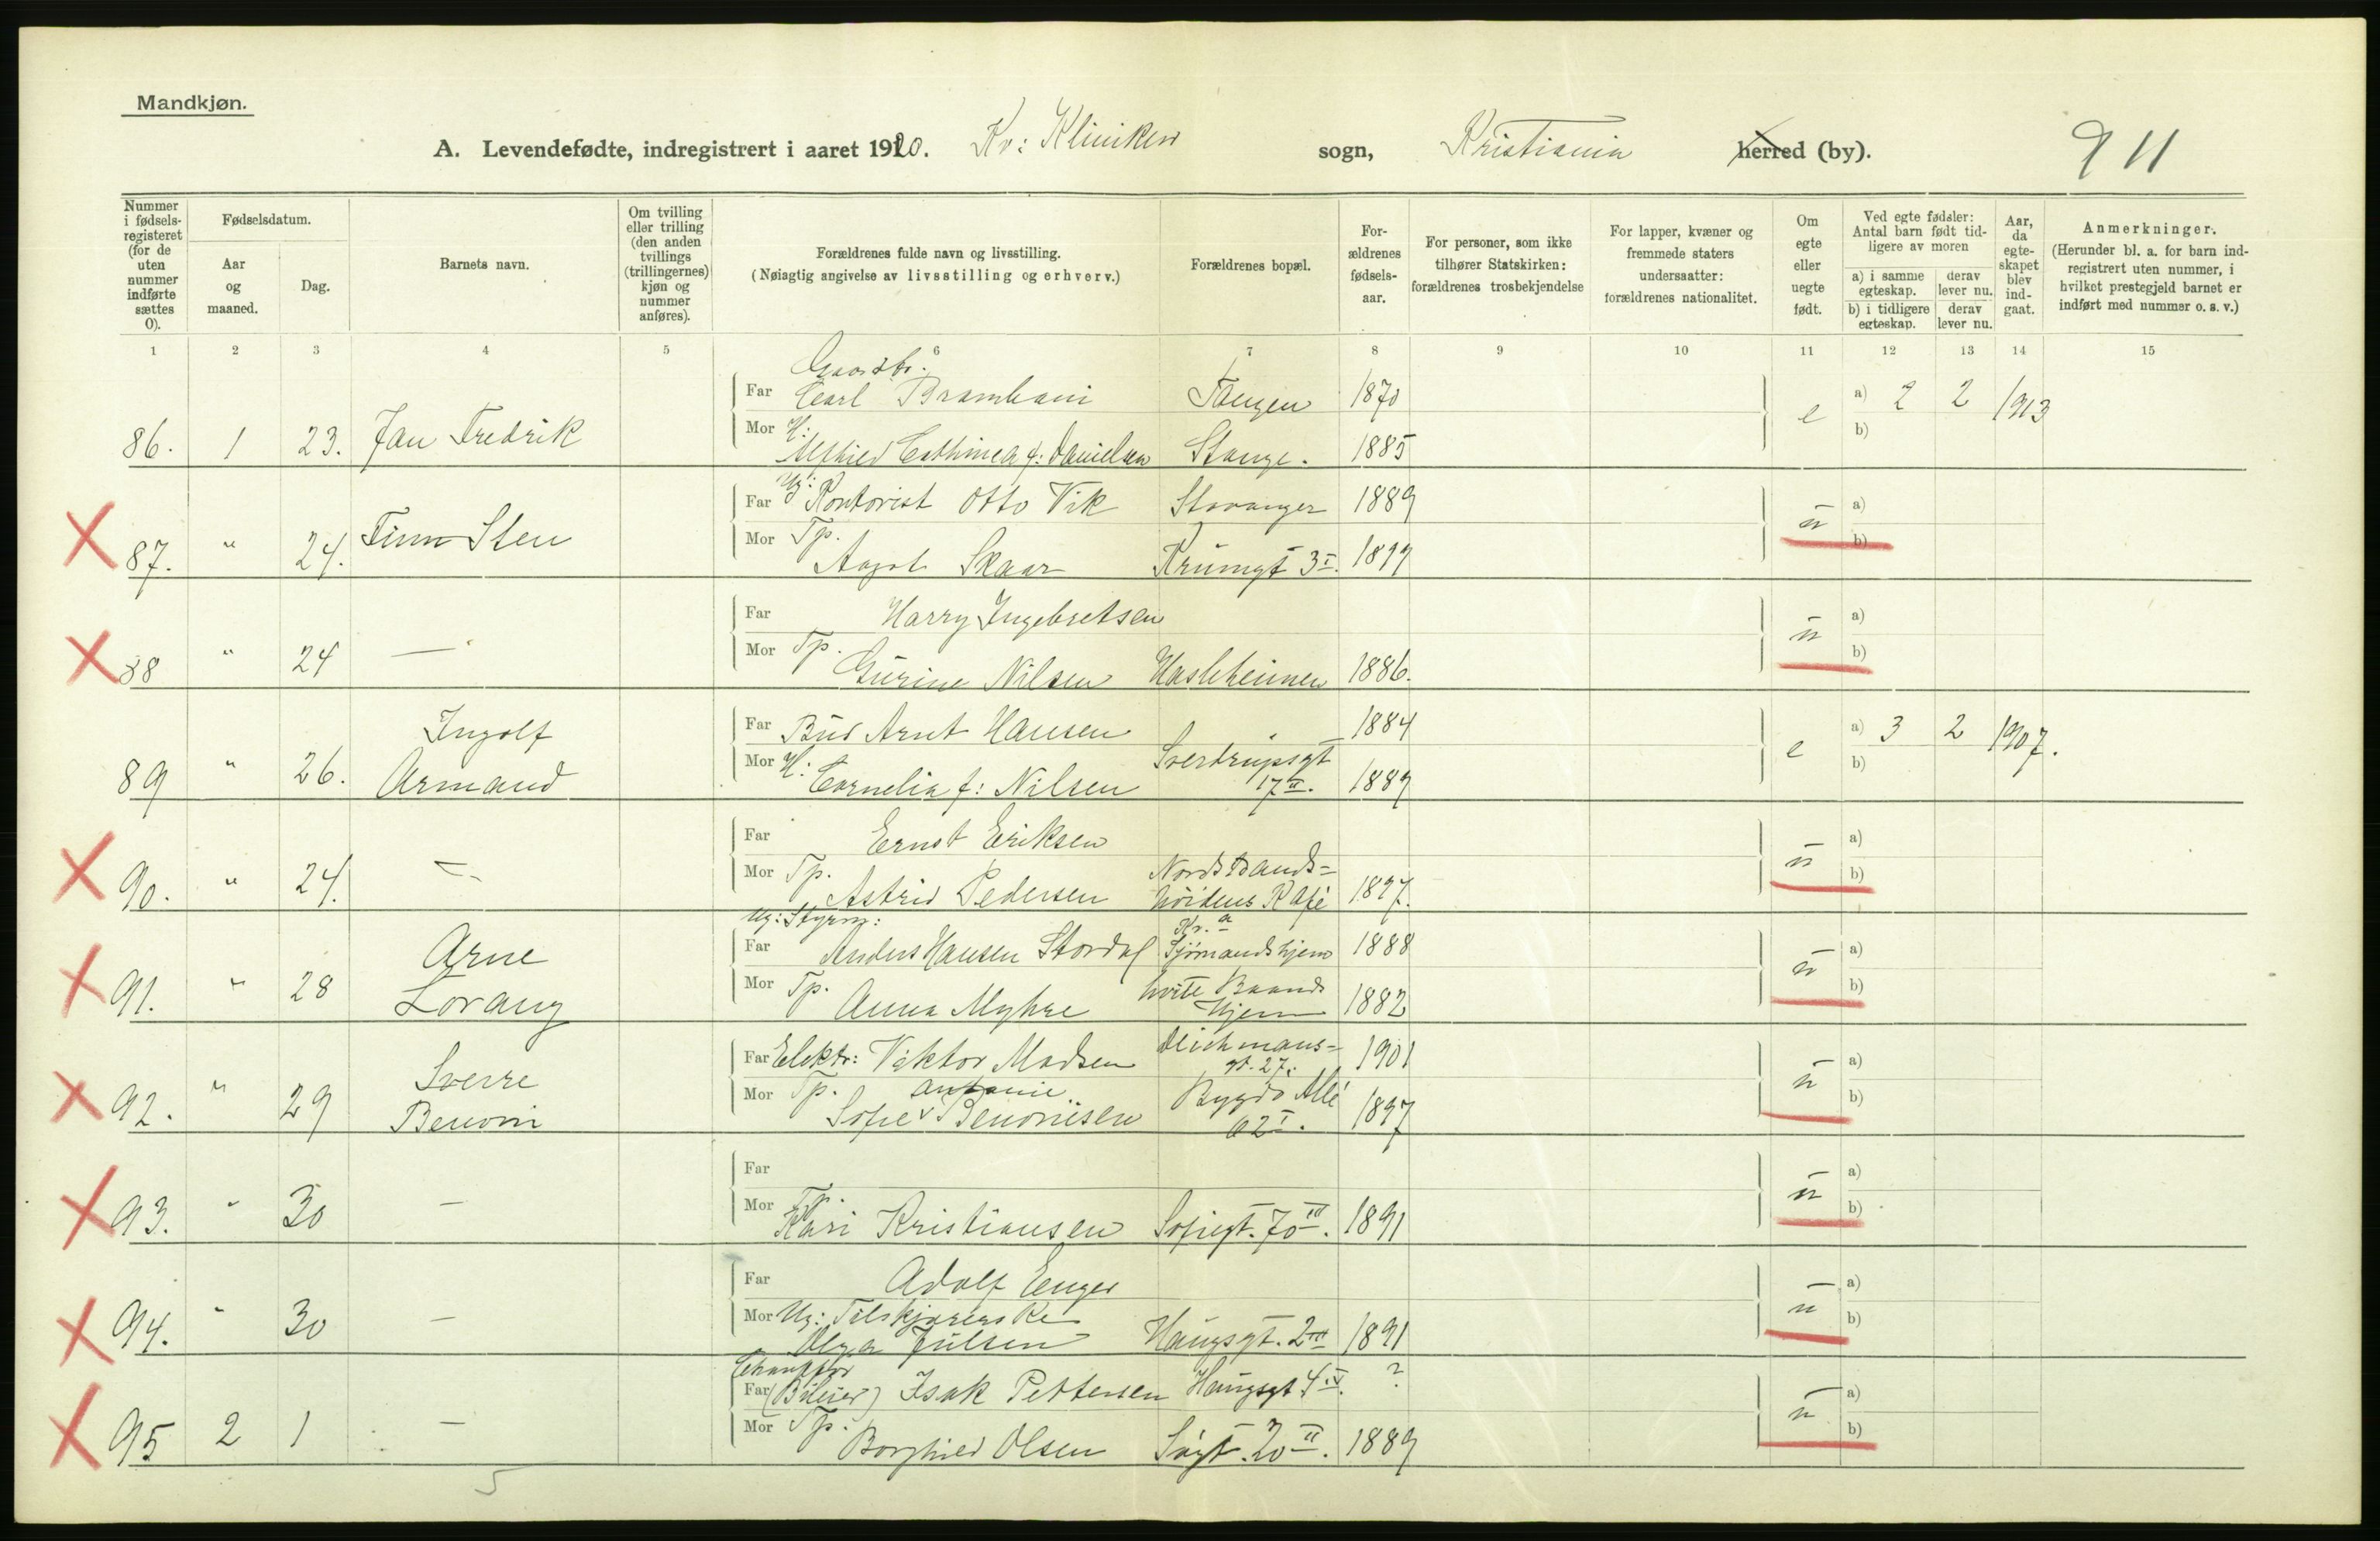 Mandkjøn.
A. Levendefødte, indregistrert i aaret 1920. Kv: Kliniken sogn, Kristiania herred (by). 911
Nummer i fødsels-registeret (for de uten nummer indførte sættes 0).
Fødselsdatum.
Aar og maaned.
Dag.
Barnets navn.
Om tvilling eller trilling (den anden tvillings (trillingernes) kjøn og nummer anføres).
Forældrenes fulde navn og livsstilling.
(Nøiagtig angivelse av livsstilling og erhverv.)
Forældrenes bopæl.
For-ældrenes fødsels-aar.
For personer, som ikke tilhører Statskirken: forældrenes trosbekjendelse
For lapper, kvæner og fremmede staters undersaatter: forældrenes nationalitet.
Om egte eller uegte født.
Ved egte fødsler: Antal barn født tid-ligere av moren
a) i samme egteskap. derav lever nu.
b) i tidligere egteskap. derav lever nu.
Aar, da egte-skapet blev ind-gaat.
Anmerkninger.
(Herunder bl. a. for barn ind-registrert uten nummer, i hvilket prestegjeld barnet er indført med nummer o. s. v.)
1 2 3 4 5 6 7 8 9 10 11 12 13 14 15
Gaardbr.
Far Carl Tangen 1870 a) 2 2 1913
86. 1 23. Jan Fredrik e
Mor H: Cathinca f: Danielsen Stange. 1885 b)
Far Ug: Kontorist Otto Vik Stavanger 1889 a)
87. " 24. Finn Sten u
Mor Tp. Aagot Skaar Krumgt 3 I. 1899 b)
Far Harry Ingebretsen a)
88 " 24 — u
Mor Tp. Gurine Nilsen Hasleheimen 1886. b)
Far Bud Arnt Hansen 1884 a) 3 2 1907.
89 " 26. Ingolf Armand Sverdrupsgt 17 II. e
Mor H: Cornelia f: Nilsen 1889 b)
Far Ernst Eriksen a)
90. " 24. — u
Mor Tp. Astrid Pedersen Nordstrands-höidens Kafé 1897. b)
Ug: Styrm: Kr.a
Far Anders Hansen Stordal Sjømandshjem 1888 a)
91. " 28 Arne Lorang u
Mor Tp. Anna Myhre hvite Baands Hjem 1882 b)
Far Elektr: Viktor Madsen Deichmans-gt. 27. 1901 a)
92. " 29 Sverre Benoni u
Mor Tp. Sofie Antonie Benonisen Bygdö Allé 62 I. 1897 b)
Far a)
93. " 30 — u
Mor Tp. Kari Kristiansen Sofiegt. 70 III. 1891 b)
Far Adolf Enger a)
94. " 30 — u
Mor Ug: Tilskjærerske Olga Julsen Haugsgt. 2 III 1891 b)
Chauffør
Far (Bileier) Isak Pettersen Haugsgt 4 IV. ? a)
95 2 1 — u
Mor Tp. Borghild Olsen 20 II. 1889 b)
5